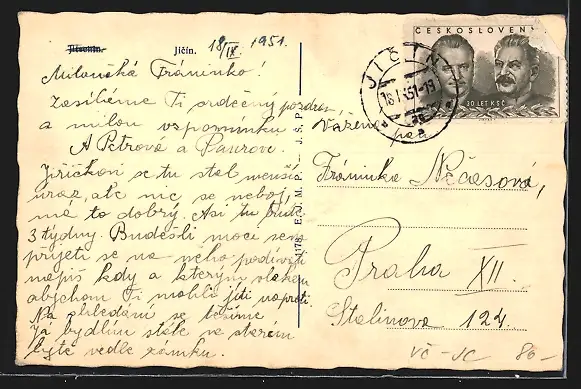 Jičín. 18/IX. 1951.
Miloučká Fráninko!
Zasíláme Ti srdečný pozdrav
a milou vzpomínku
A Petrová a Pavrovi.
Jiříčkovi se tu stal menší
úraz, ale nic se neboj,
má to dobrý. Asi tu bude
3 týdny. Budeš-li moci sem
přijeti se na něho podívati
napiš kdy a kterým vlakem
abychom Ti mohli jíti naproti.
Na shledání se těšíme
Já bydlím stále ve starém
bytě vedle zámku.
1178 E. O. M. P. – J. Š. P.
ČESKOSLOVENSKO
30 LET KSČ
JIČÍN
Vážená
paní
Fráninka Nečasová,
Praha XII.
Stalinova 124.
VČ-JC 80-